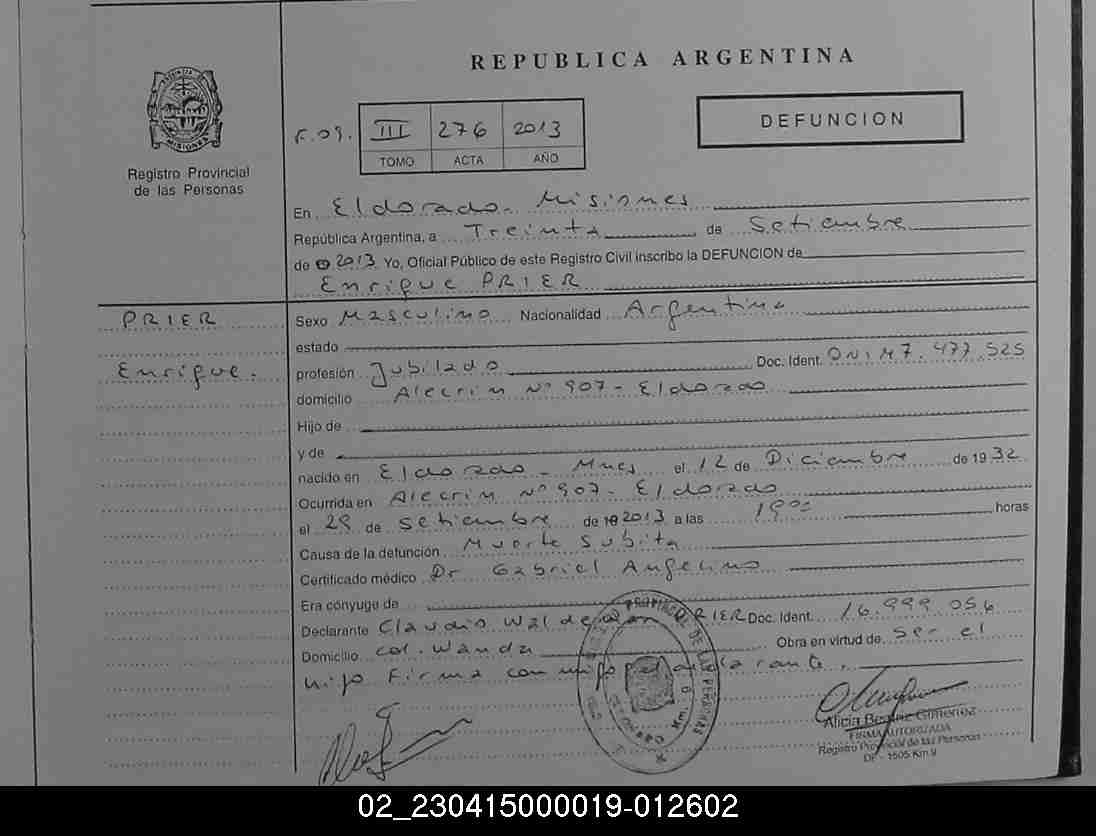 REPUBLICA ARGENTINA
PROVINCIA DE
MISIONES
Registro Provincial
de las Personas
F. 09. III 276 2013
TOMO ACTA AÑO
DEFUNCION
En Eldorado - Misiones
República Argentina, a Treinta de Setiembre
de 2013 Yo, Oficial Público de este Registro Civil inscribo la DEFUNCION de
Enrique PRIER
PRIER
Enrique.
Sexo Masculino Nacionalidad Argentina
estado
profesión Jubilado Doc. Ident. DNI M7.477.525
domicilio Alecrin Nº 907 - Eldorado
Hijo de
y de
nacido en Eldorado - Mnes el 12 de Diciembre de 1932
Ocurrida en Alecrin Nº 907 - Eldorado
el 29 de Setiembre de 2013 a las 19ºº horas
Causa de la defunción Muerte Subita
Certificado médico Dr Gabriel Angelino
Era cónyuge de
Declarante Claudio Waldemar PRIER Doc. Ident. 16.999.056
Domicilio Col. Wanda Obra en virtud de Ser el
hijo Firma conmigo el declarante.
REGISTRO PROVINCIAL DE LAS PERSONAS
Km. 9
Alicia Beatriz Gimenez
FIRMA AUTORIZADA
Registro Provincial de las Personas
DF - 1505 Km 9
02_230415000019-012602